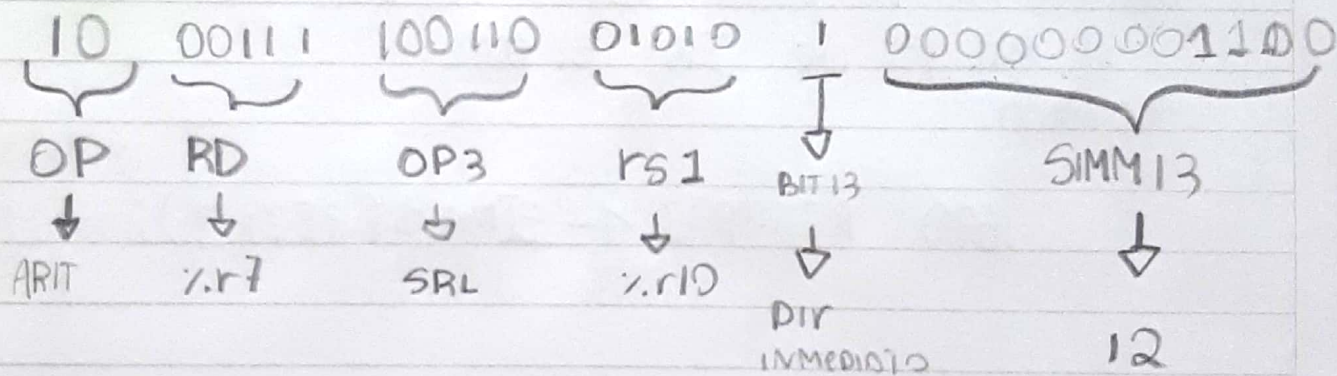 10 00111 100110 01010 1 0000000001100
OP RD OP3 rs1 BIT13 SIMM13
ARIT %r7 SRL %r10 Dir inmediato 12